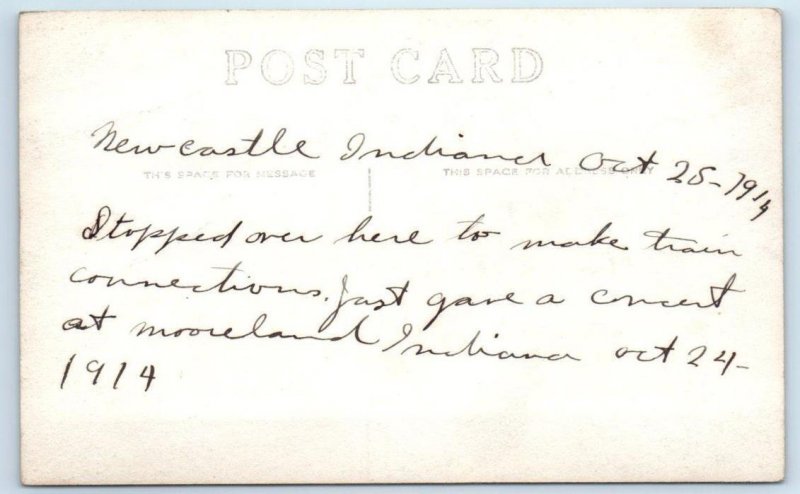 POST CARD
Newcastle Indiana Oct 25-1914
THIS SPACE FOR MESSAGE
THIS SPACE FOR ADDRESS ONLY
Stopped over here to make train
connections. Just gave a concert
at mooreland Indiana oct 24-
1914